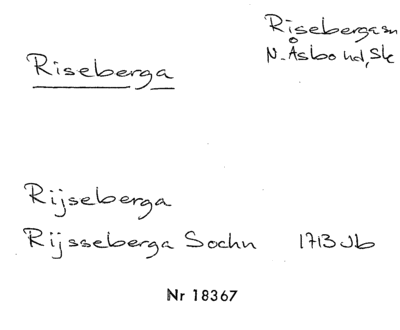 Risebergasn
N. Åsbo hd, Sk
Riseberga
Rijseberga
Rijsseberga Sochn 1713 Jb
Nr 18367